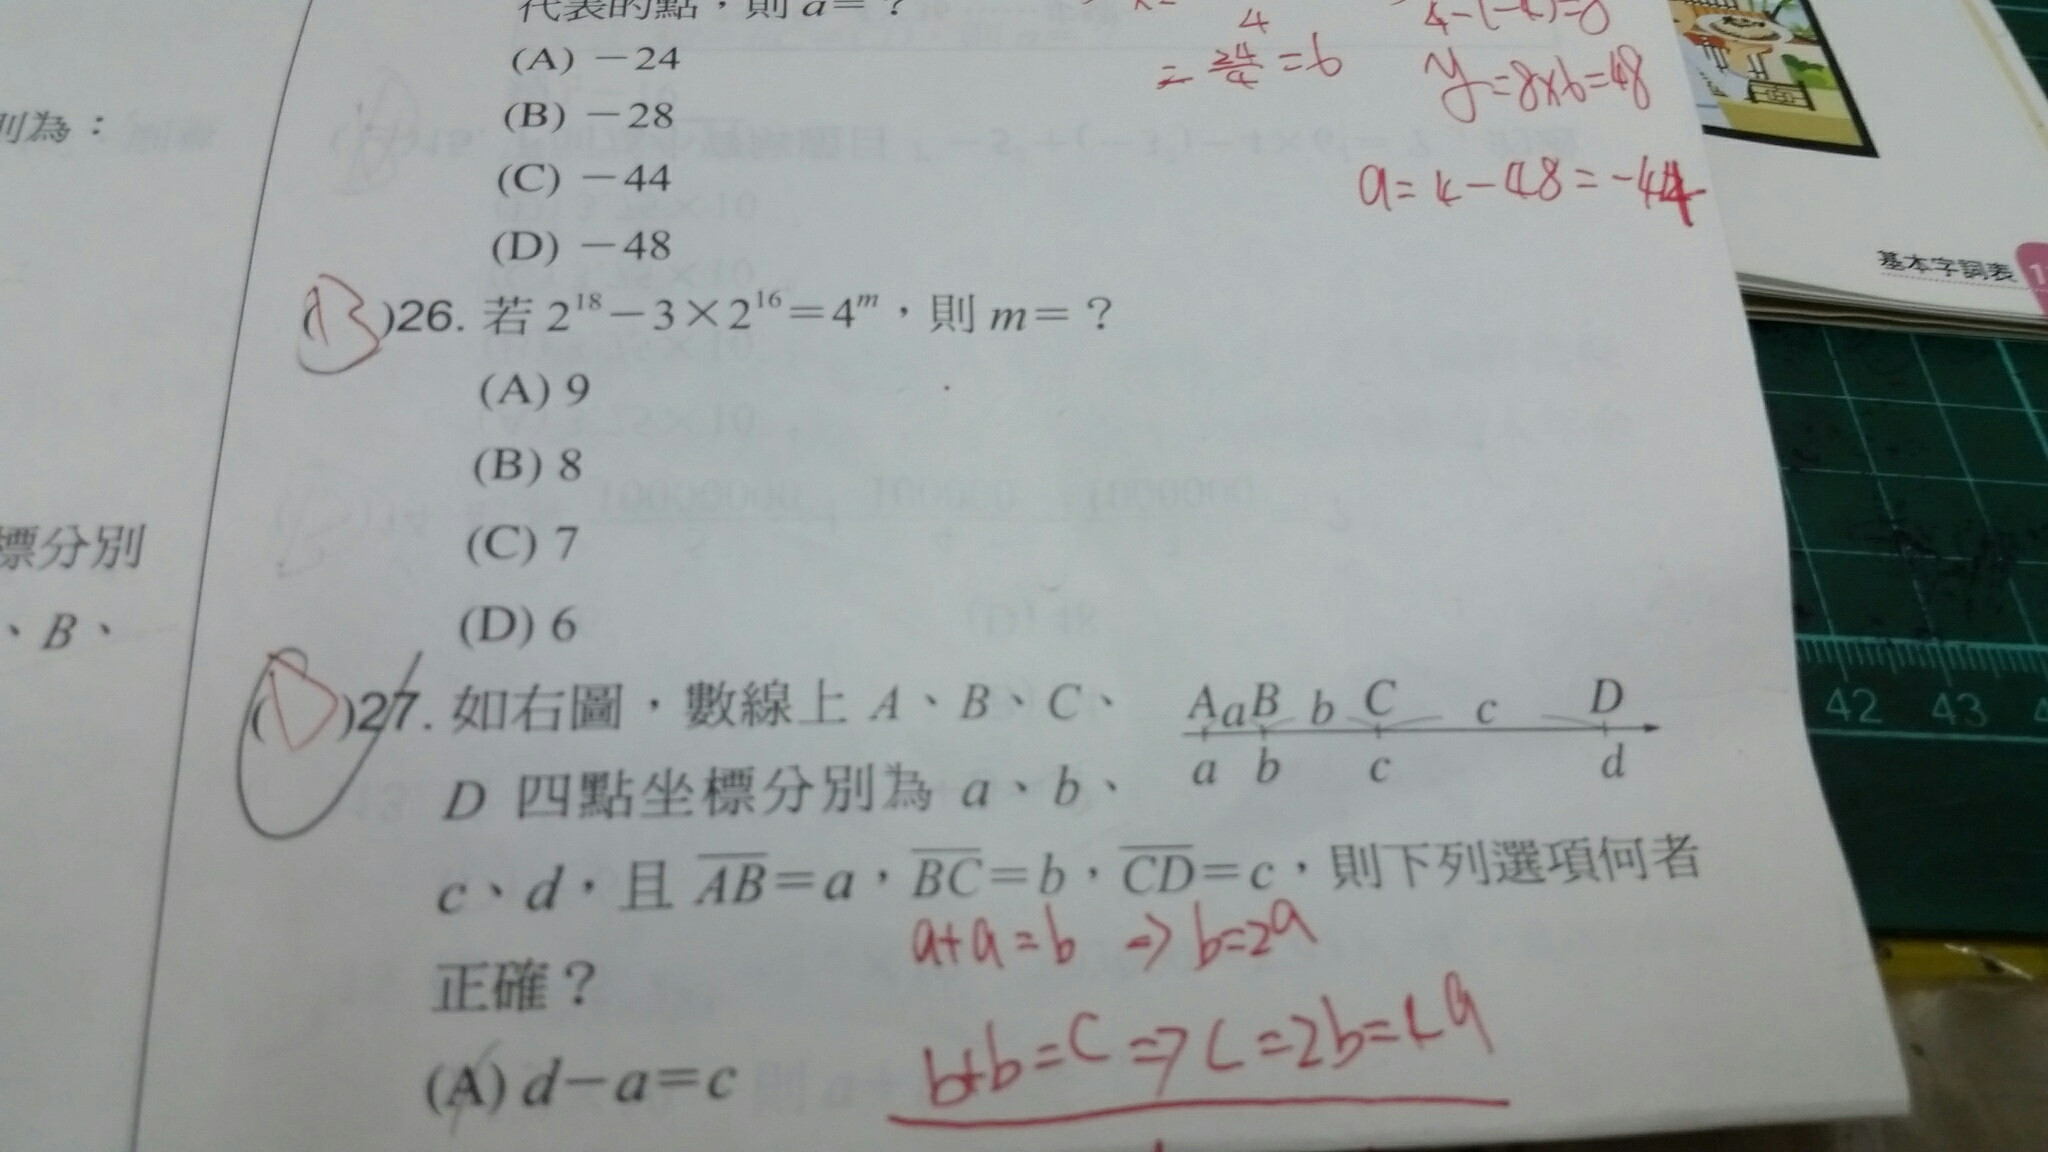 代表的點，則 a＝？
(A) －24
(B) －28
(C) －44
(D) －48
4
= 24/4 = 6
4-(-4)=8
y=8×6=48
a=4-48=-44
則為：
標分別
、B、
基本字詞表
(B)26. 若 2¹⁸－3×2¹⁶＝4ᵐ，則 m＝？
(A) 9
(B) 8
(C) 7
(D) 6
(D)27. 如右圖，數線上 A、B、C、
D 四點坐標分別為 a、b、
c、d，且 A̅B̅＝a，B̅C̅＝b，C̅D̅＝c，則下列選項何者
正確？
(A) d－a＝c
A a B b C c D
a b c d
a+a=b ⇒ b=2a
b+b=C ⇒ C=2b=4a
42 43